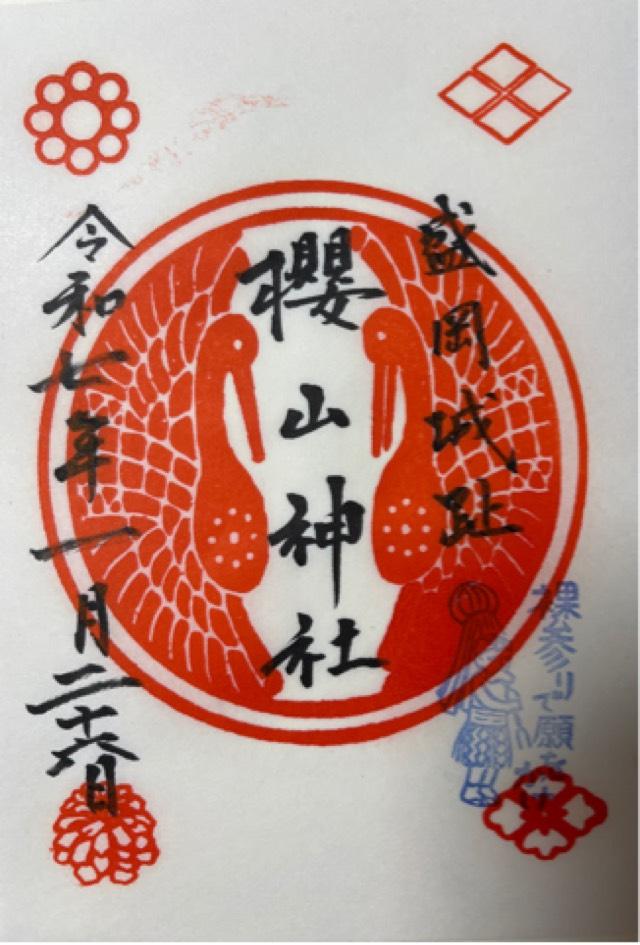 盛岡城趾
櫻山神社
令和七年一月二十六日
裸参りで願を